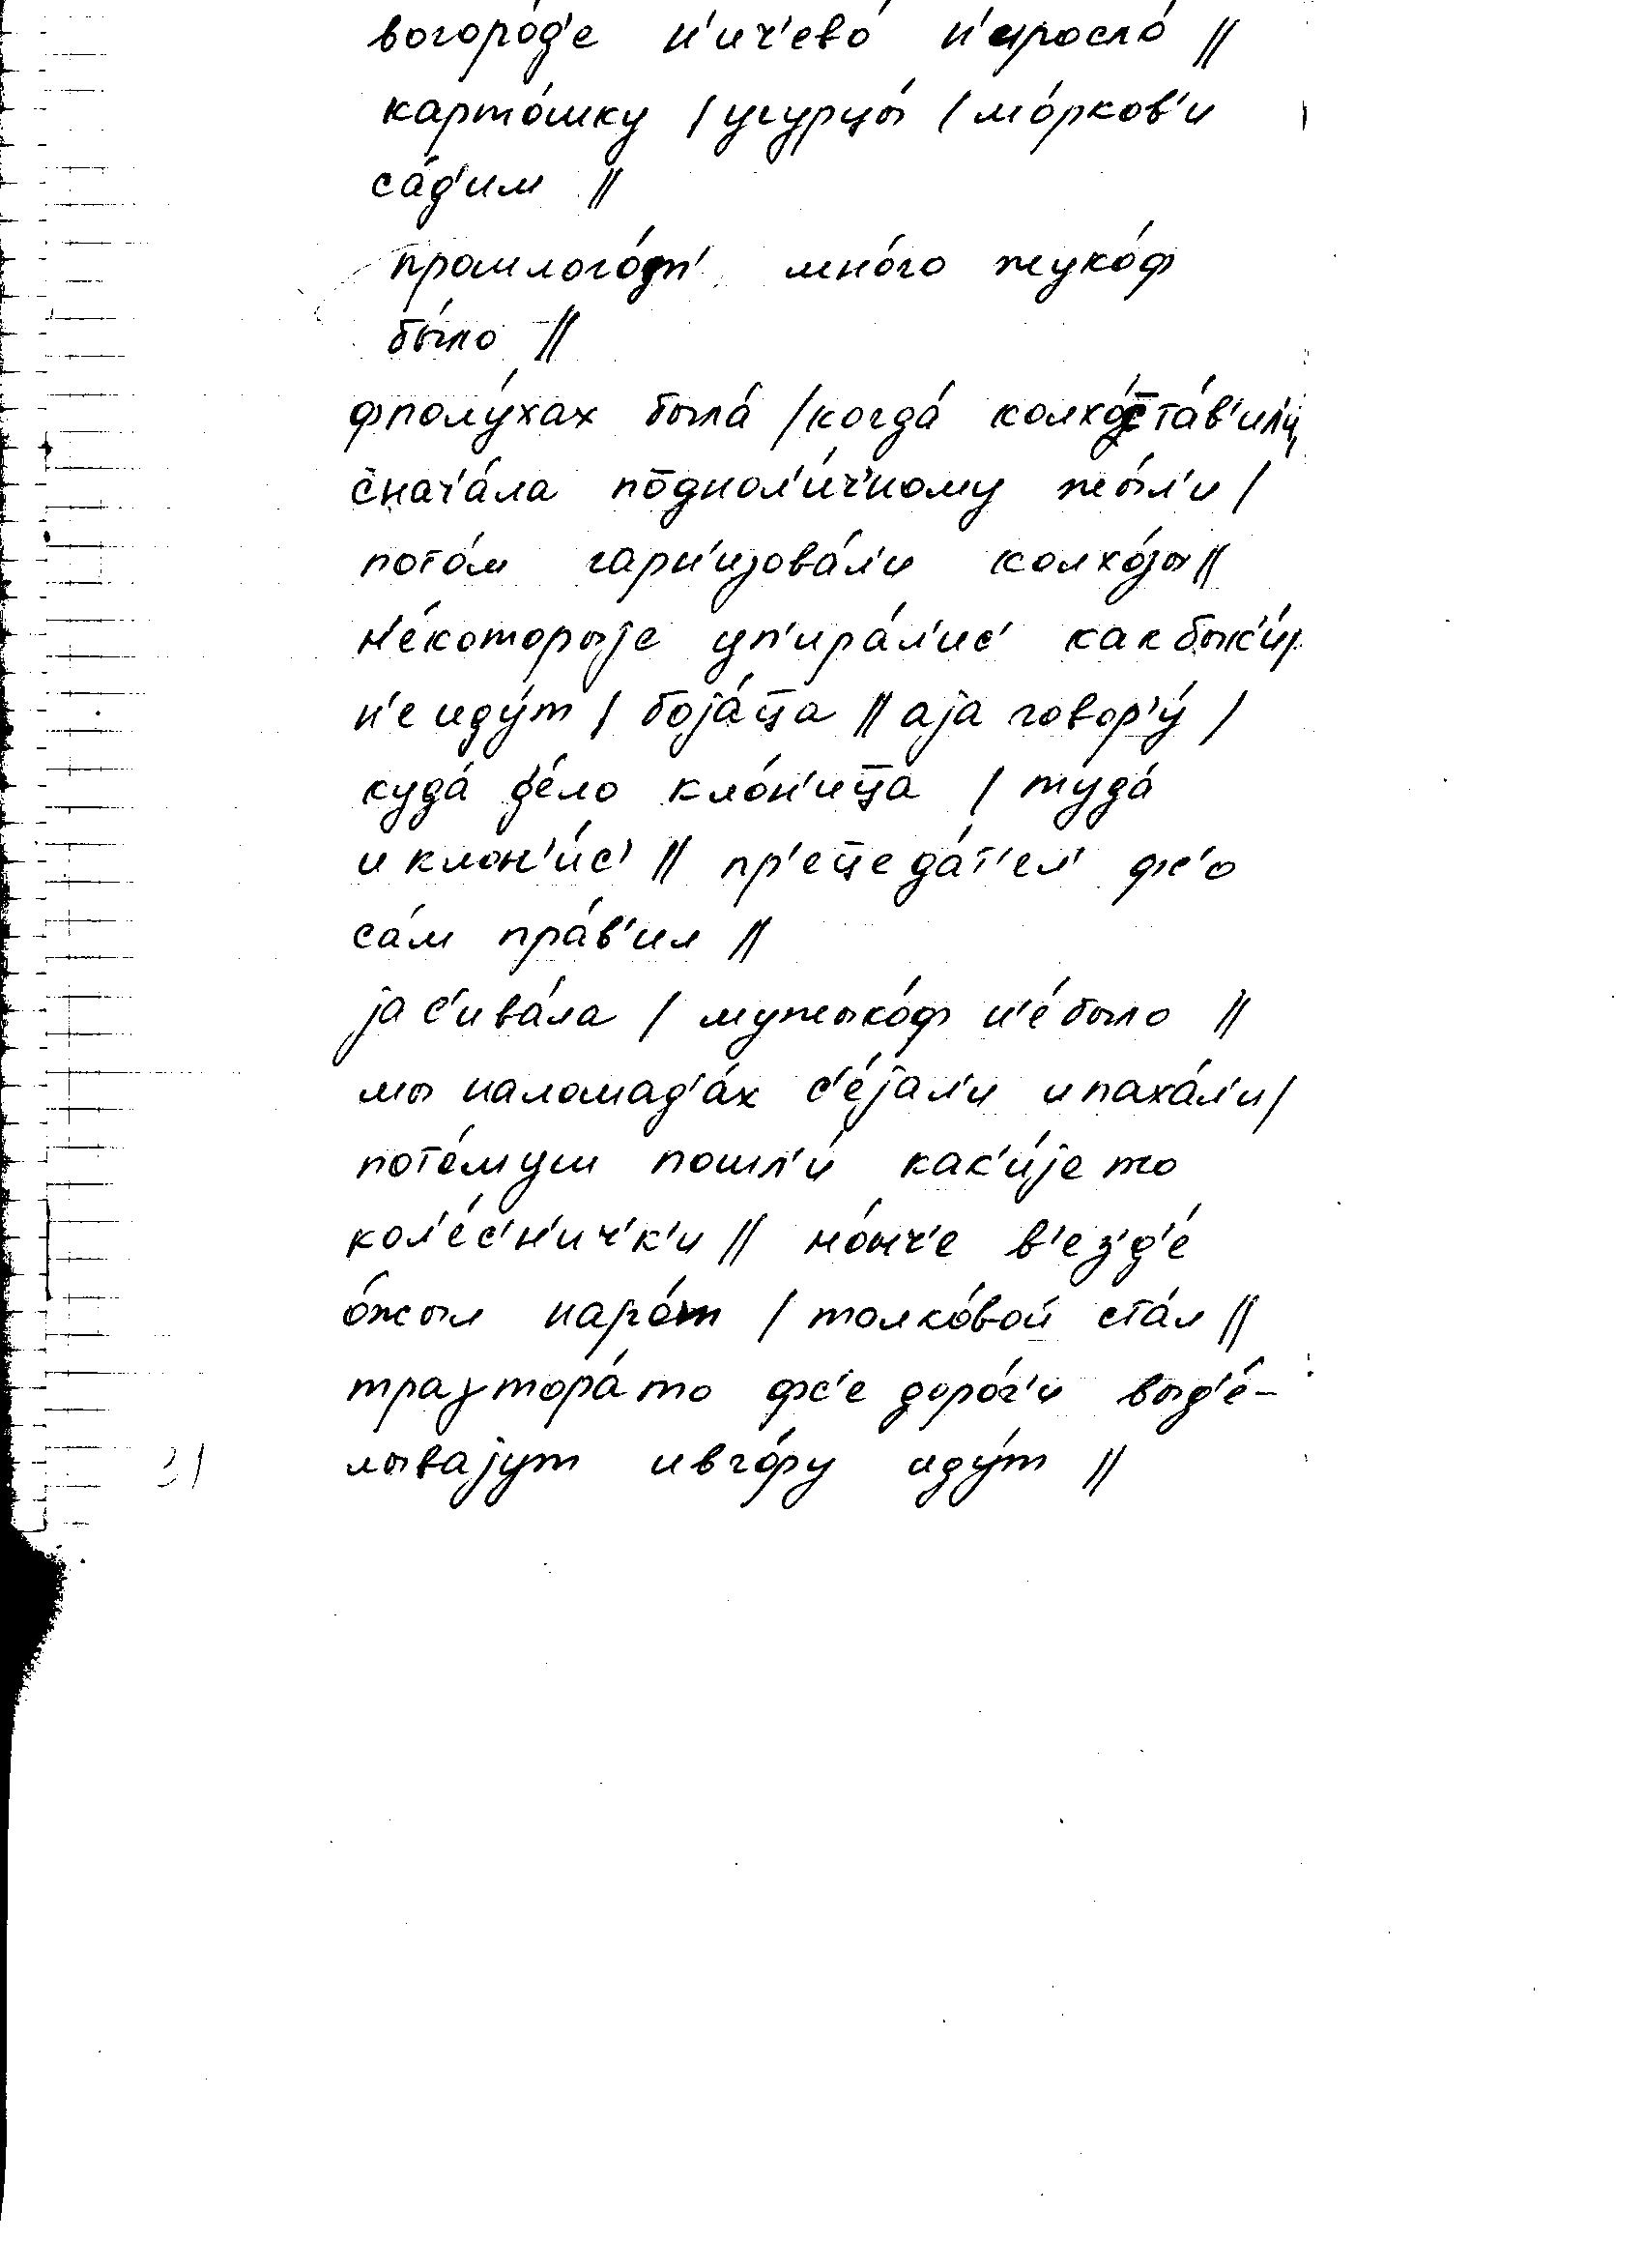 вогоро́д'е н'ич'ево́ н'иросло́ ||
карто́шку | угурцы́ | мо́рков'и
са́д'им ||
прошлого́т' мно́го жуко́ф
бы́ло ||
фполу́хах была́ | когда́ колхо́ста́в'ил'и
снач'а́ла под̄нол'и́ч'ному жы́л'и |
пото́м гарн'изова́л'и колхо́зы ||
н'е́которыjе уп'ира́л'ис' как бык'и́ |
н'е иду́т | боjа́ц̄а || аjа говор'у́ |
куда́ д'е́ло кло́н'иц̄а | туда́
и клон'и́с' || пр'еце да́т'ел' фс'о
са́м пра́в'ил ||
jа с'ива́ла | мужыко́ф н'е́ было ||
мы наломад'а́х с'е́jал'и и паха́л'и |
поте́м уш пошл'и́ как'и́jе то
кол'е́с'н'ич'к'и || но́нч'е в'ез'д'е́
о́жыл наро́т | толко́вой ста́л ||
траγтора́ то фс'е доро́г'и выд'е́-
лываjут и вго́ру иду́т ||
31